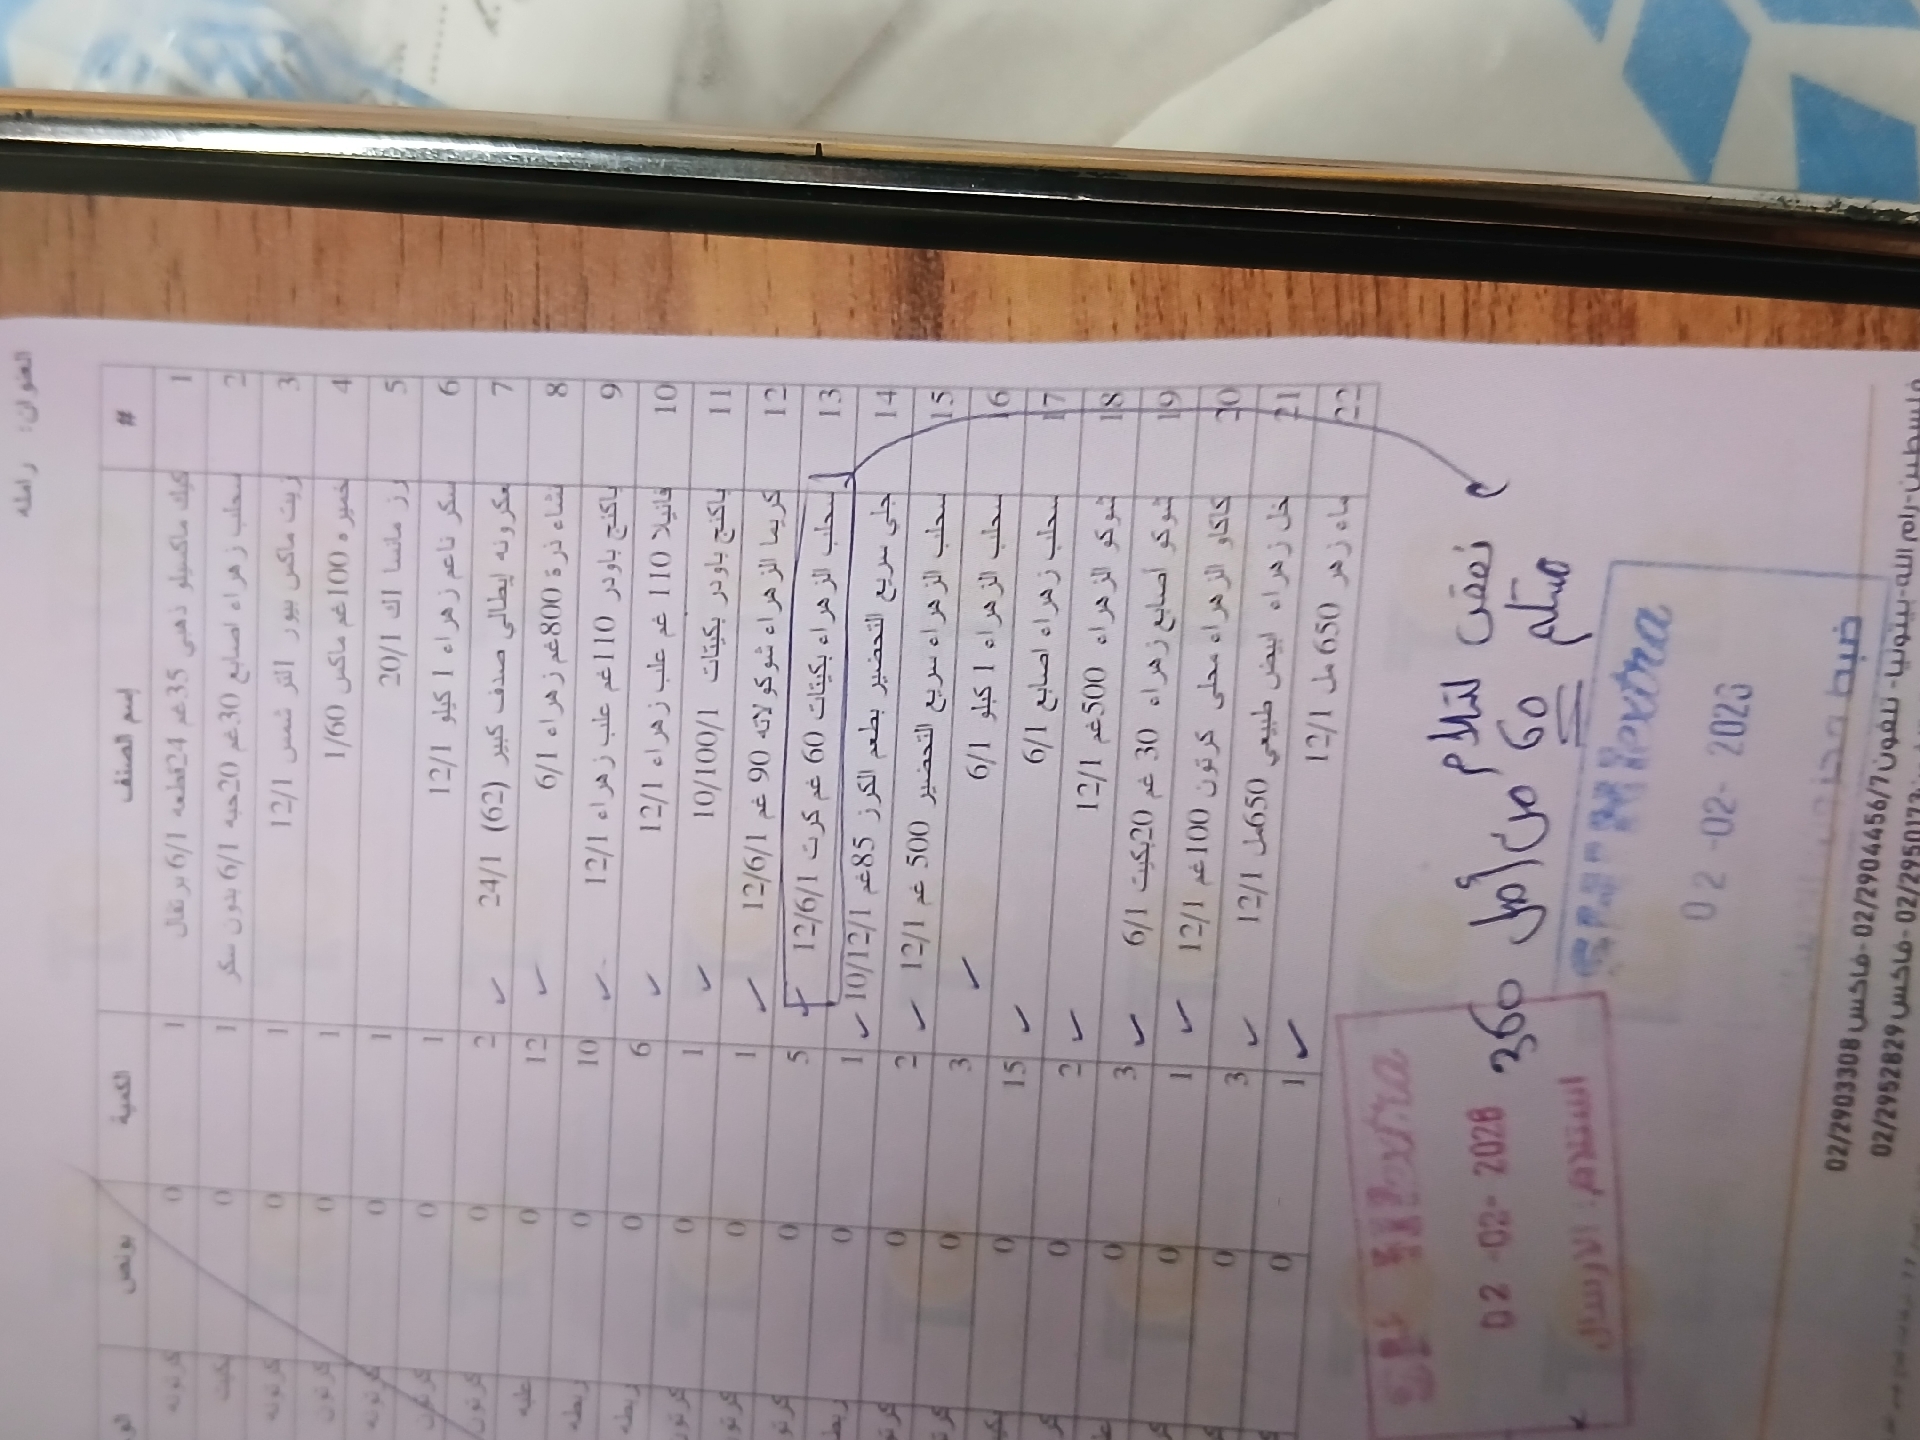 العنوان: رام الله
# إسم الصنف الكمية بونص
1 كيك ماكسيلو ذهبي 35غم 24قطعه 6/1 برتقال 1 0 كرتونه
2 سحلب زهراء اصابع 30غم 20حبه 6/1 بدون سكر 1 0 بكيت
3 زيت ماكس بيور اللتر شمس 12/1 1 0 كرتونه
4 خميره 100غم ماكس 1/60 1 0 كرتون
5 رز مانسا اك 20/1 1 0 كرتونه
6 سكر ناعم زهراء 1 كيلو 12/1 1 0 كرتون
7 معكرونه إيطالي صدف كبير (62) 24/1 2 0 كرتون
8 نشاء ذرة 800غم زهراء 6/1 12 0 علبه
9 باكنج باودر 110غم علب زهراء 12/1 10 0 ربطه
10 فانيلا 110 غم علب زهراء 12/1 6 0 ربطه
11 باكنج باودر بكيتات 10/100/1 1 0
12 كريما الزهراء شوكولاته 90 غم 12/6/1 1 0
13 سحلب الزهراء بكيتات 60 غم كرت 12/6/1 5 0
14 جلي سريع التحضير بطعم الكرز 85غم 10/12/1 1 0
15 سحلب الزهراء سريع التحضير 500 غم 12/1 2 0
16 سحلب الزهراء 1 كيلو 6/1 3 0
17 سحلب زهراء اصابع 6/1 15 0
18 شوكو الزهراء 500غم 12/1 2 0
19 شوكو أصابع زهراء 30 غم 20بكيت 6/1 3 0
20 كاكاو الزهراء محلى كرتون 100غم 12/1 1 0
21 خل زهراء ابيض طبيعي 650مل 12/1 3 0
22 ماء زهر 650 مل 12/1 1 0
60 من أصل 360
extra
02-02-2026
extra
02-02-2026
استلام الارسال
فلسطين-رام الله-بيتونيا-تلفون 02/2904456/7-فاكس 02/2903308
02/2952829 فاكس